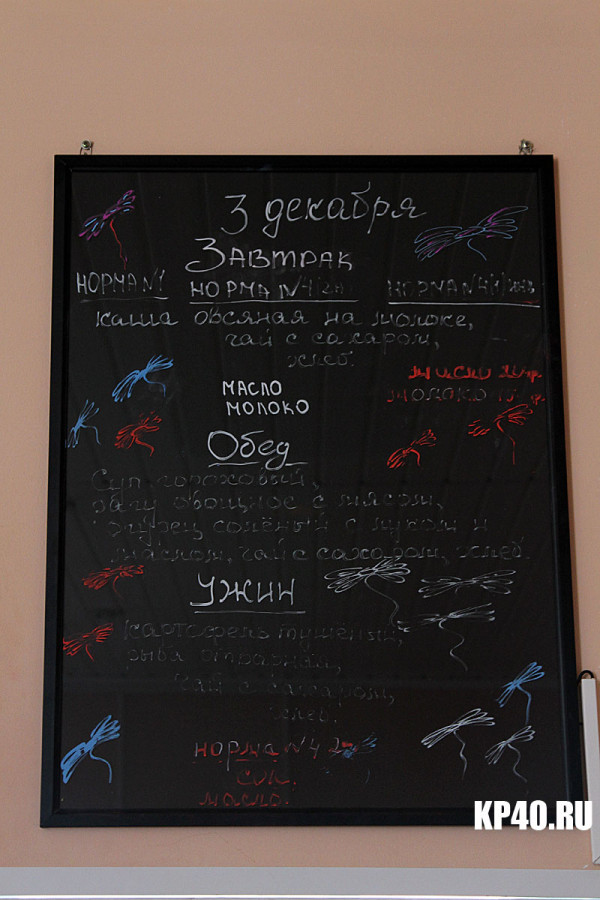 3 декабря
Завтрак
НОРМА N1 НОРМА N4 НОРМА N4
каша овсяная на молоке,
чай с сахаром,
хлеб.
МАСЛО
МОЛОКО
масло
молоко
Обед
Суп гороховый,
рагу овощное с мясом,
огурец солёный с луком и
маслом, чай с сахаром, хлеб.
УЖИН
картофель тушёный,
рыба отварная,
чай с сахаром,
хлеб.
норма N4
сок.
масло.
KP40.RU